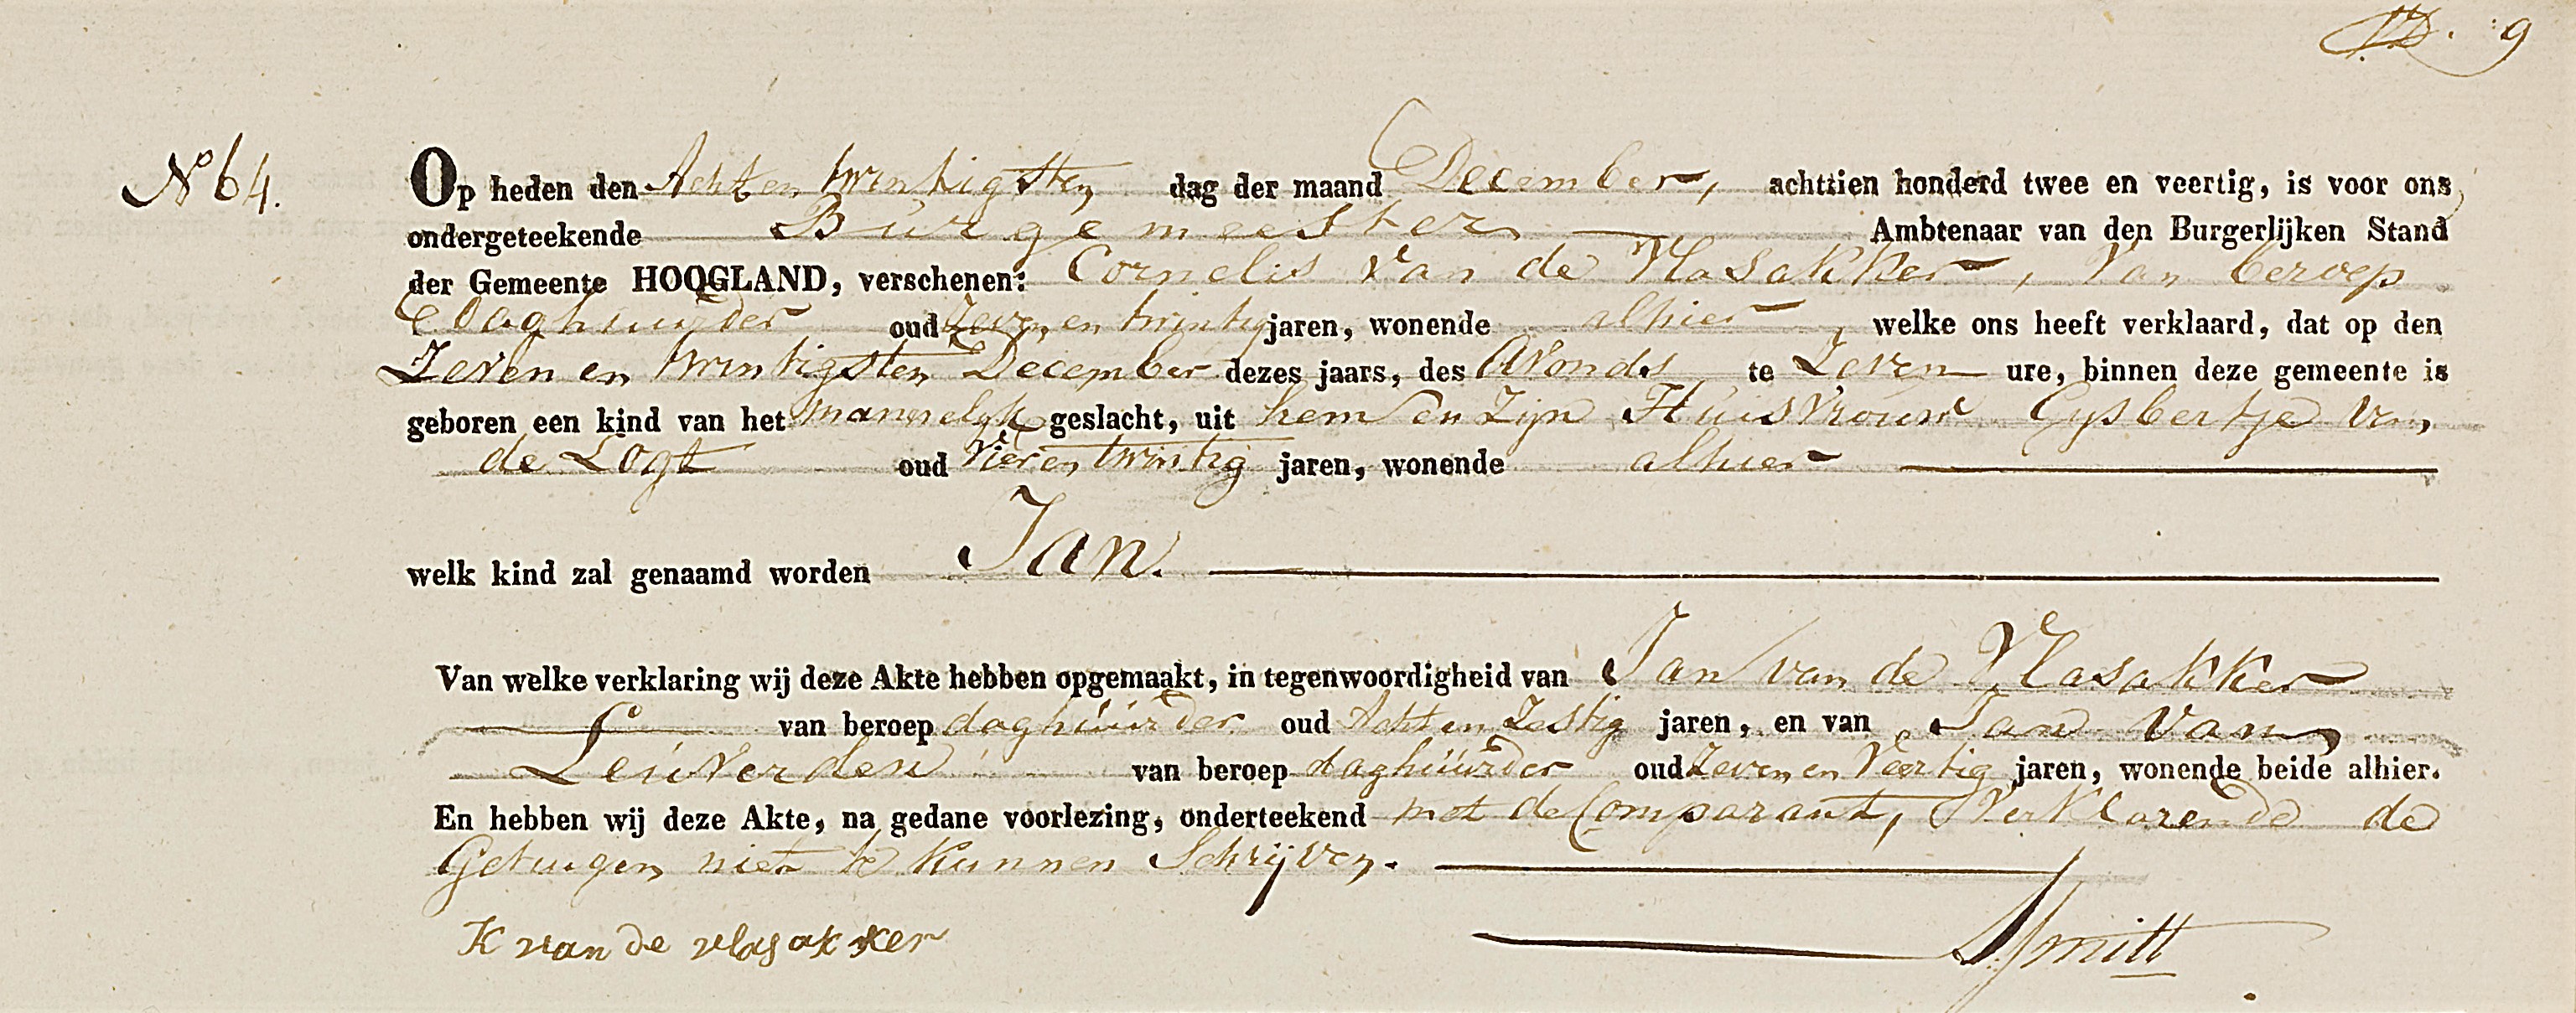 9
No 64.
Op heden den Acht en twintigsten dag der maand December, achttien honderd twee en veertig, is voor ons,
ondergeteekende Burgemeester Ambtenaar van den Burgerlijken Stand
der Gemeente HOOGLAND, verschenen: Cornelis van de Vlasakker, van beroep
Daghuurder oud Zeven en twintig jaren, wonende alhier welke ons heeft verklaard, dat op den
Zeven en twintigsten December dezes jaars, des Avonds te Zeven ure, binnen deze gemeente is
geboren een kind van het mannelyk geslacht, uit hem en Zyn Huisvrouw Gysbertje van
de Logt oud Vier en twintig jaren, wonende alhier
welk kind zal genaamd worden Jan.
Van welke verklaring wij deze Akte hebben opgemaakt, in tegenwoordigheid van Jan van de Vlasakker
van beroep daghuurder oud Acht en Zestig jaren, en van Jan van
Leuverden van beroep daghuurder oud Zeven en Veertig jaren, wonende beide alhier.
En hebben wij deze Akte, na gedane voorlezing, onderteekend met de Comparant, Verklarende de
Getuigen niet te kunnen Schrijven.
K van de vlasakker Smitt